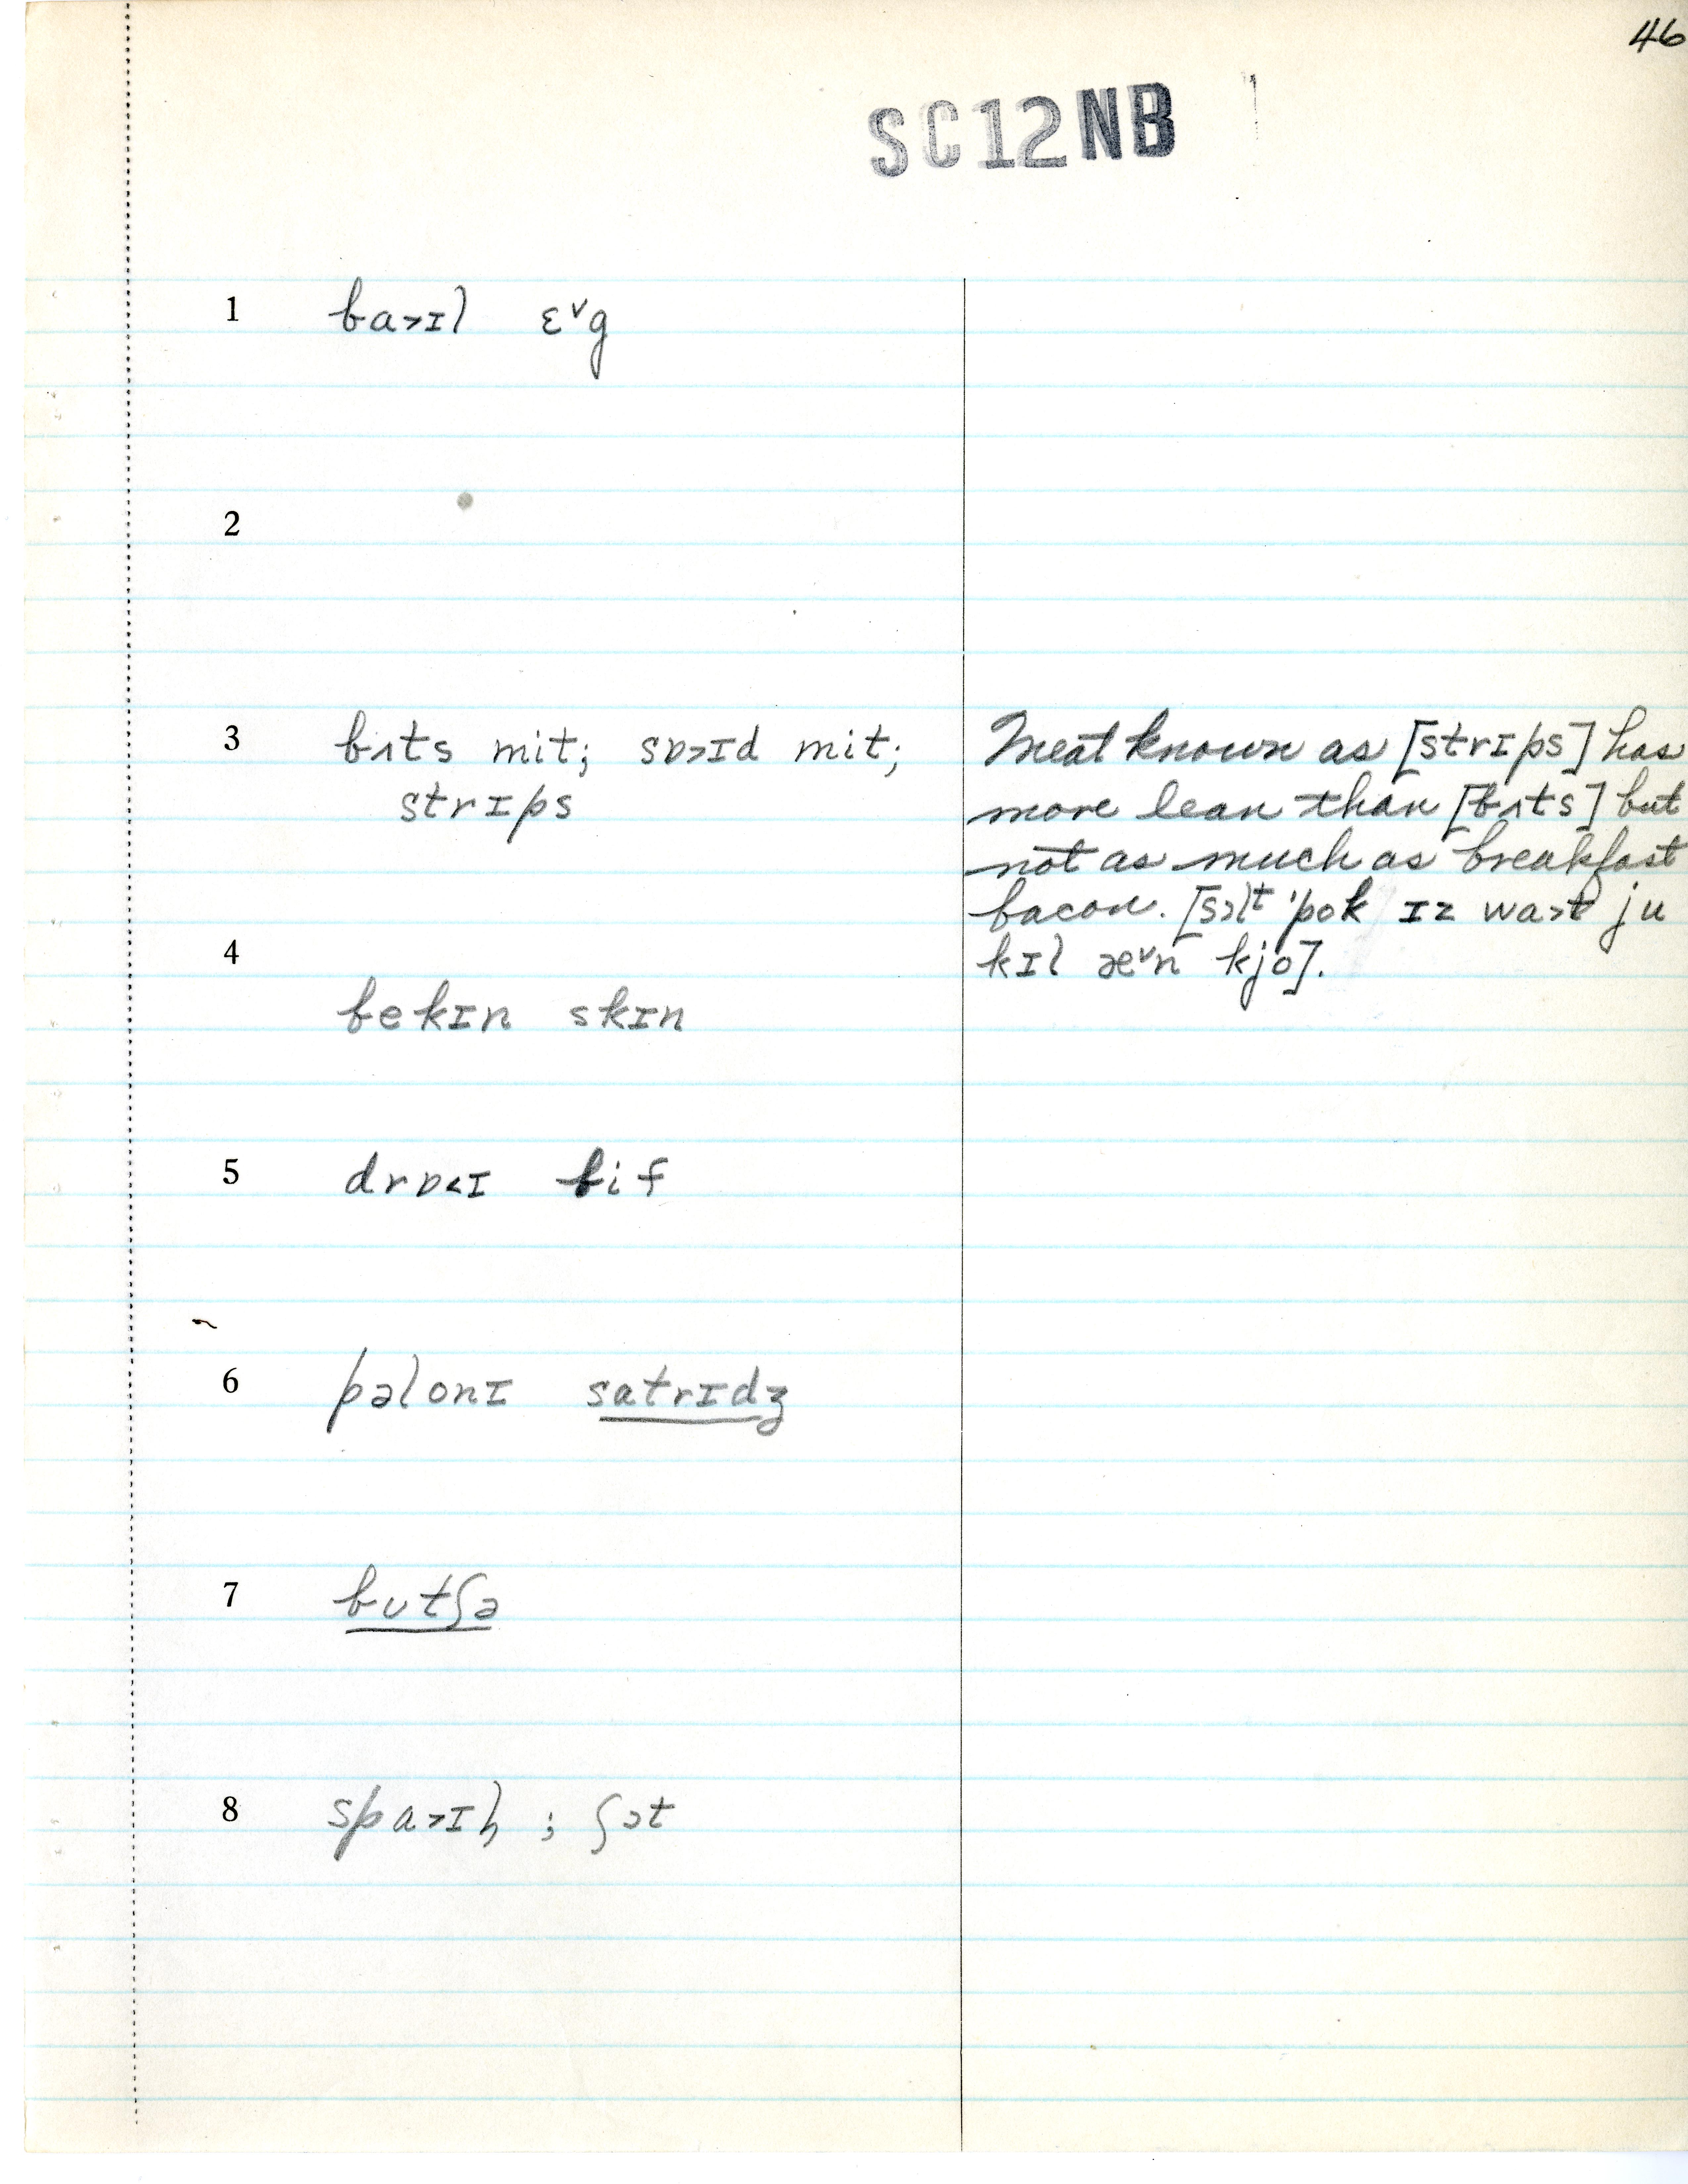 46
SC12NB
1 ba>ɪl ɛ˅g
2
3 bʌts mit; sɒ>ɪd mit;
strɪps
Meat known as [strɪps] has
more lean than [bʌts] but
not as much as breakfast
bacon. [sɔlt 'pok ɪz wa>t ju
kɪl æ˅n kjo].
4
bekɪn skɪn
5 drɒ<ɪ bif
6 pəlonɪ satrɪdʒ
7 bʊtʃə
8 spa>ɪl̩ ; ʃɔt